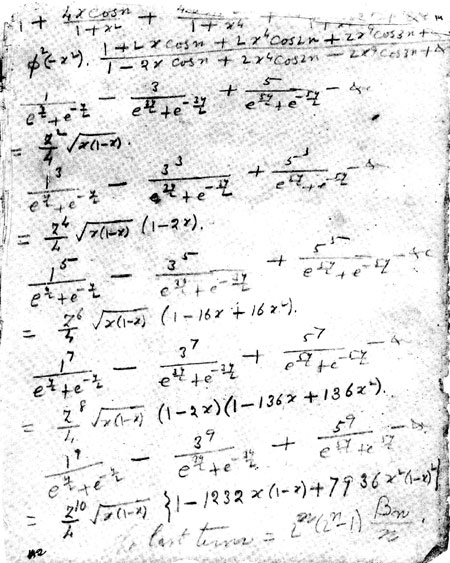 1 + 4x cos n / 1+x² + 1+x⁴ +
φ²(-x²). 1+2x cos n + 2x⁴ cos 2n + 2x⁹ cos 3n + &c / 1-2x cos n + 2x⁴ cos 2n - 2x⁹ cos 3n + &c
1 / e^{y/2}+e^{-y/2} - 3 / e^{3y/2}+e^{-3y/2} + 5 / e^{5y/2}+e^{-5y/2} - &c
= z²/4 √x(1-x).
1³ / e^{y/2}+e^{-y/2} - 3³ / e^{3y/2}+e^{-3y/2} + 5³ / e^{5y/2}+e^{-5y/2} - &c
= z⁴/4 √x(1-x) (1-2x).
1⁵ / e^{y/2}+e^{-y/2} - 3⁵ / e^{3y/2}+e^{-3y/2} + 5⁵ / e^{5y/2}+e^{-5y/2} - &c
= z⁶/4 √x(1-x) (1-16x+16x²).
1⁷ / e^{y/2}+e^{-y/2} - 3⁷ / e^{3y/2}+e^{-3y/2} + 5⁷ / e^{5y/2}+e^{-5y/2} - &c
= z⁸/4 √x(1-x) (1-2x)(1-136x+136x²).
1⁹ / e^{y/2}+e^{-y/2} - 3⁹ / e^{3y/2}+e^{-3y/2} + 5⁹ / e^{5y/2}+e^{-5y/2} - &c
= z¹⁰/4 √x(1-x) {1-1232x(1-x)+7936x²(1-x)²}
last term = 2ⁿ(2ⁿ-1) Bn/n.